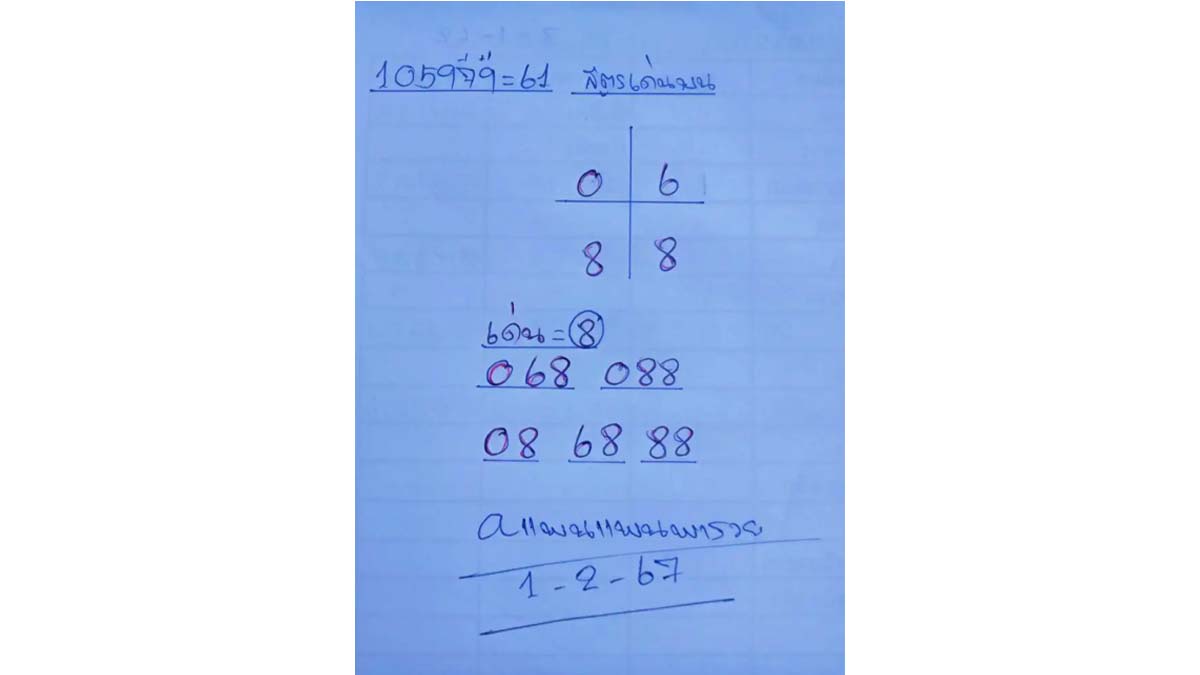 1059 = 61 สูตรเด่นบน
0 6
8 8
เด่น = 8
068 088
08 68 88
1 - 2 - 67